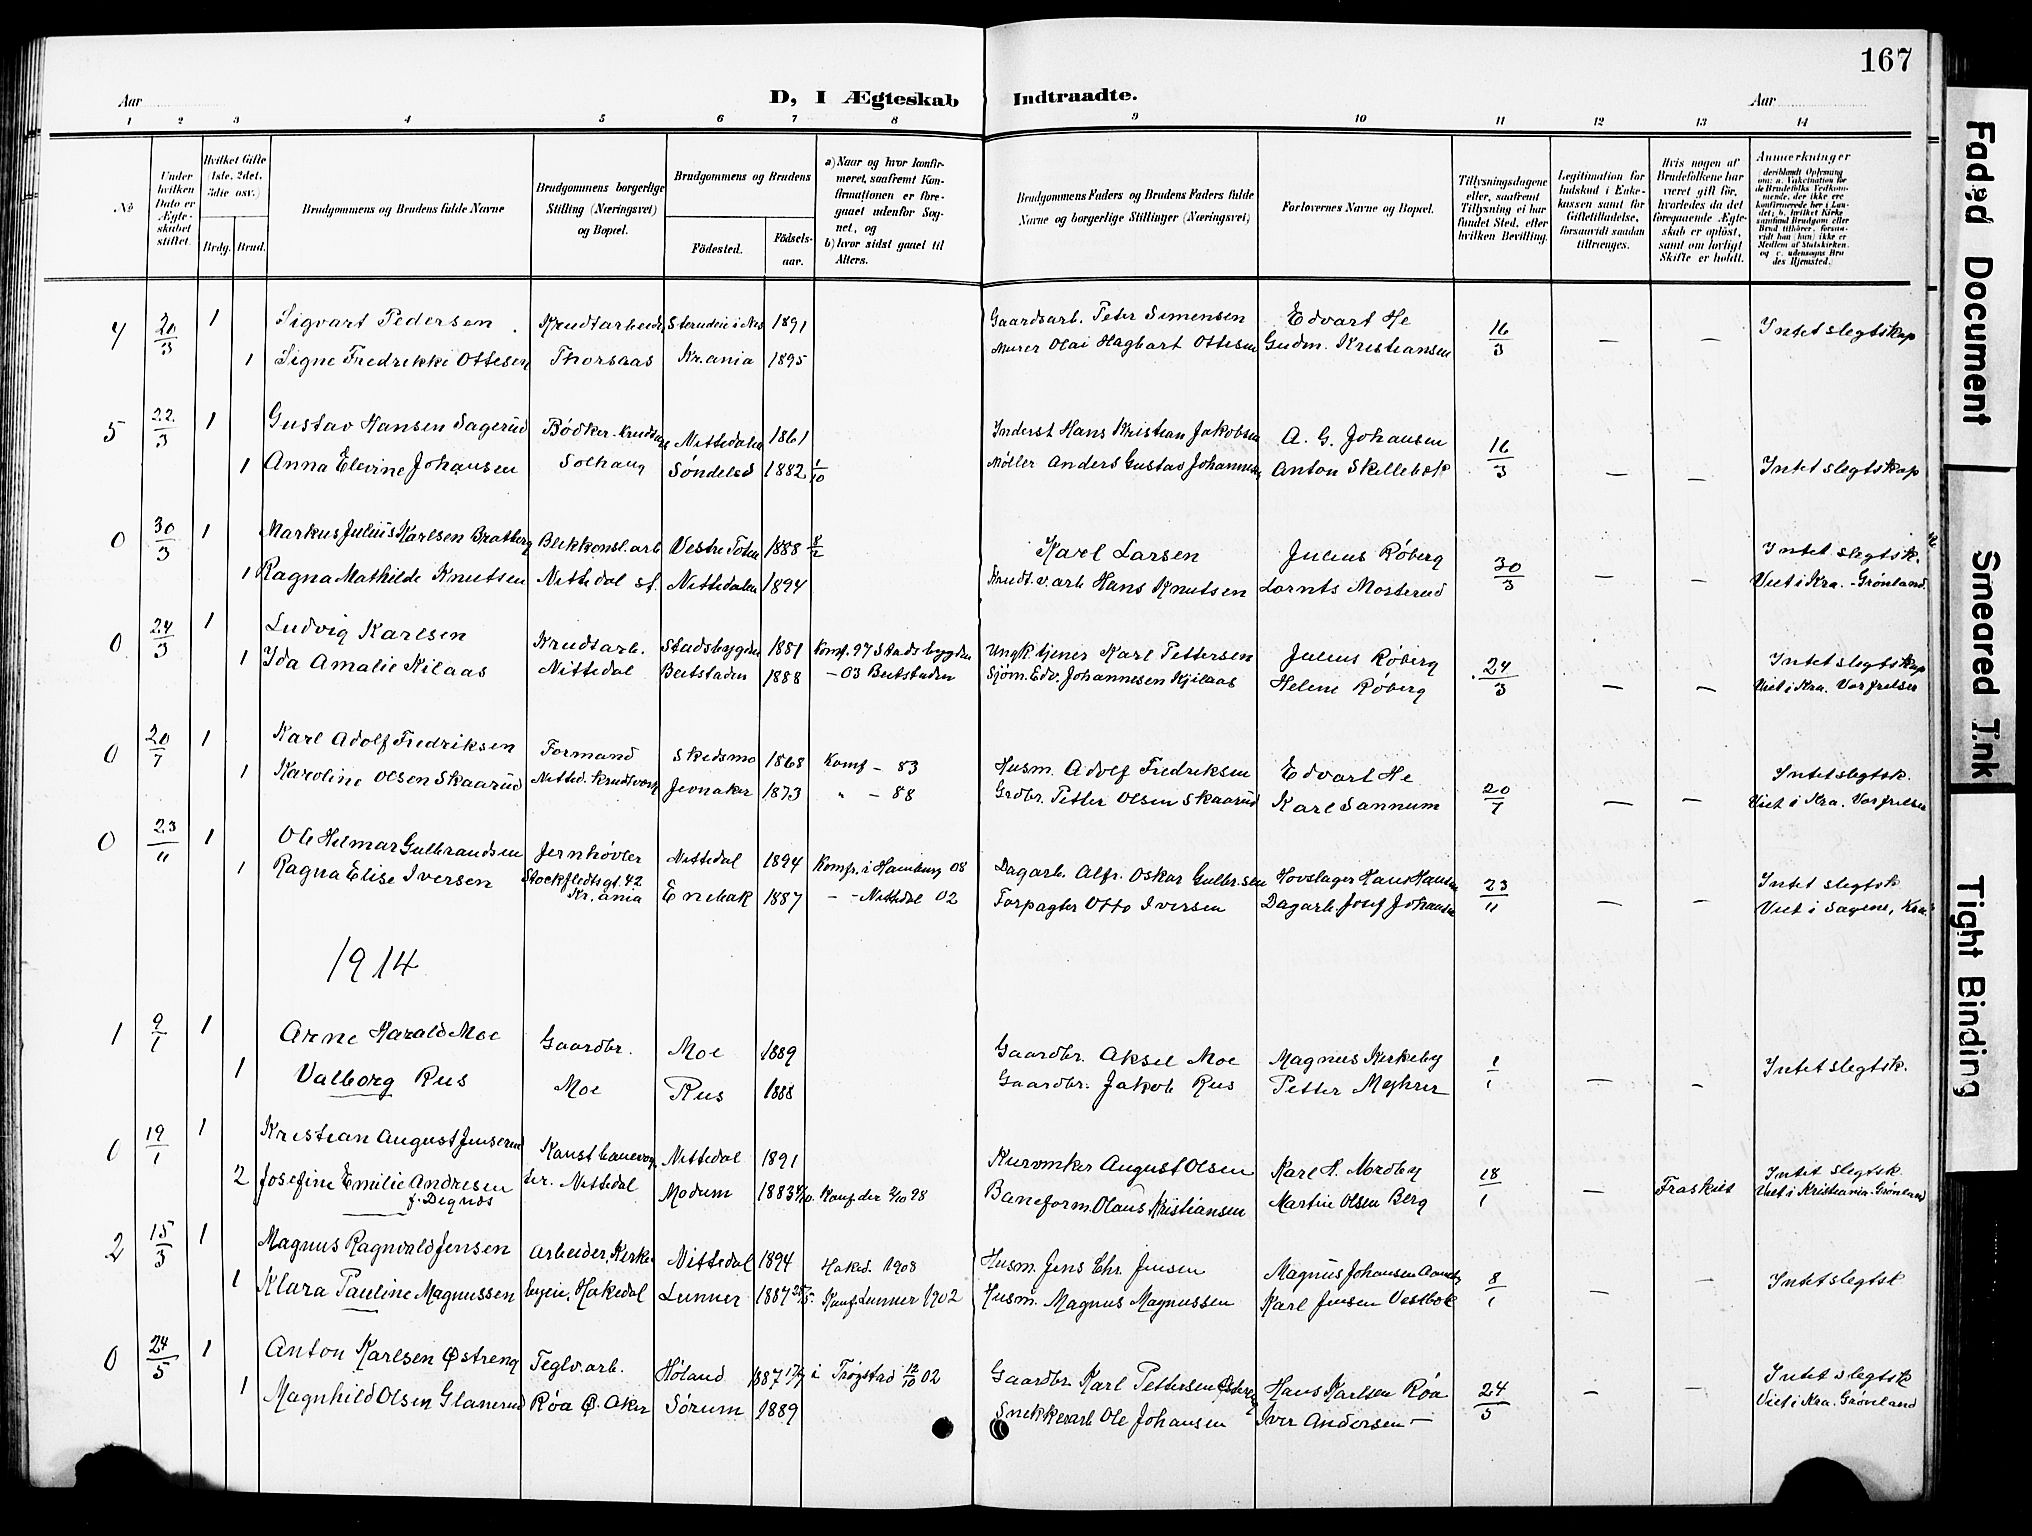 167
Aar
D, I Ægteskab Indtraadte.
Aar
1 2 3 4 5 6 7 8 9 10 11 12 13 14
No
Under hvilken Dato er Ægteskabet stiftet.
Hvilket Gifte (1ste, 2det, 3die osv.)
Brdg. Brud.
Brudgommens og Brudens fulde Navne
Brudgommens borgerlige Stilling (Næringsvei) og Bopæl.
Brudgommens og Brudens
Fødested.
Fødselsaar.
a) Naar og hvor konfirmeret, saafremt Konfirmationen er foregaaet udenfor Sognet, og
b) hvor sidst gaaet til Alters.
Brudgommens Faders og Brudens Faders fulde Navne og borgerlige Stillinger (Næringsvei)
Forlovernes Navne og Bopæl.
Tillysningsdagene eller, saafremt Tillysning ei har fundet Sted, efter hvilken Bevilling.
Legitimation for Indskud i Enkekassen samt for Giftetilladelse, forsaavidt saadan tiltrænges.
Hvis nogen af Brudefolkene har været gift før, hvorledes da det foregaaende Ægteskab er opløst, samt om lovligt Skifte er holdt.
Anmerkninger
4 20/3 1 Sigvart Pedersen Krudtarbeid. 1891 Gaardsarb. Peter Simensen Edvart He 16/3 — — Intet slegtskap
1 Signe Fredrikke Ottesen Thorsaas Kr.ania 1895 Murer Olai Hagbart Ottesen Gudm. Kristiansen
5 22/3 1 Gustav Hansen Sagerud Bødker Nittedalen 1861 Inderst Hans Kristian Jakobsen A. G. Johansen 16/3 — — Intet slegtskap
1 Anna Elevine Johansen Solhaug Søndeled 1882 1/10 Møller Anders Gustav Johannesen Anton Skillebek
0 30/3 1 Markus Julius Karlsen Bratberg Blikkonst.arb Vestre Toten 1888 8/2 Karl Larsen Julius Røberg 30/3 — — Intet slegtsk.
1 Ragna Mathilde Knutsen Nittedal st. Nittedalen 1894 Krudt.v.arb Hans Knutsen Lornts Mosterud Viet i Kra. - Grønland.
0 24/3 1 Ludvig Karlsen Krudtarb. Stadsbygden 1881 Konf. 97 Stadsbygden Ungk. tjener Karl Pettersen Julius Røberg 24/3 — — Intet slegtskap
1 Ida Amalie Kilaas Nittedal Beitstaden 1888 - 03 Beitstaden Sjøm. Edv. Johannesen Kjilaas Helene Røberg Viet i Kra. Vor frelser
0 20/7 1 Karl Adolf Fredriksen Formand Skedsmo 1868 Konf - 83 Husm. Adolf Fredriksen Edvart He 20/7 — — Intet slegtsk.
1 Karoline Olsen Skaarud Nitted. Krudtverk Jevnaker 1873 " - 88 Grdbr. Petter Olsen Skaarud Karl Sannum Viet i Kra. Vor frelser
0 23/11 1 Ole Hilmar Gulbrandsen Jernhøvler Nittedal 1894 Konf. i Hamburg 08 Dagarb. Alfr. Oskar Gulbr.sen Hovslager Hans Hansen 23/11 — — Intet slegtsk.
1 Ragna Elise Iversen Stockfledtsgt. 42 Kr.ania Enebak 1887 - - Nittedal 02 Forpagter Otto Iversen Dagarb. Josef Johansen Viet i Sagene, Kra.
1914
1 9/1 1 Arne Harald Moe Gaardbr. Moe 1889 Gaardbr. Aksel Moe Magnus Kirkeby 1/1 — — Intet slegtsk.
1 Valborg Rus Moe Rus 1888 Gaardbr. Jakob Rus Petter Myhrer
0 19/1 1 Kristian August Jenserud Nittedal 1891 Kurvmker August Olsen Karl H. Nordby 18/1 — Fraskilt Intet slegtsk.
2 Josefine Emilie Andresen f. Degnæs ter. Nittedal Modum 1883 Konf der 2/10 98 Baneform. Olaus Kristiansen Martin Olsen Berg Viet i Kristiania-Grønland
2 15/3 1 Magnus Ragnvald Jensen Arbeider, Kirke Nittedal 1894 Haked. 1908 Husm. Jens Chr. Jensen Magnus Johansen 8/1 — — Intet slegtsk
1 Klara Pauline Magnussen byen, Hakedal Lunner 1887 Konf Lunner 1902 Husm. Magnus Magnussen Karl Jensen Vestbok
0 24/5 1 Anton Karlsen Østreng Teglv.arb. Høland 1887 i Trøgstad 12/10 02 Gaardbr. Karl Pettersen Østreng Hans Karlsen Røa 24/5 — — Intet slegtsk
1 Magnhild Olsen Glanerud Røa Ø. Aker Sørum 1889 Snekkerarb Ole Johansen Iver Andersen — Viet i Kra. Grønland
Faded Document
Smeared Ink
Tight Binding